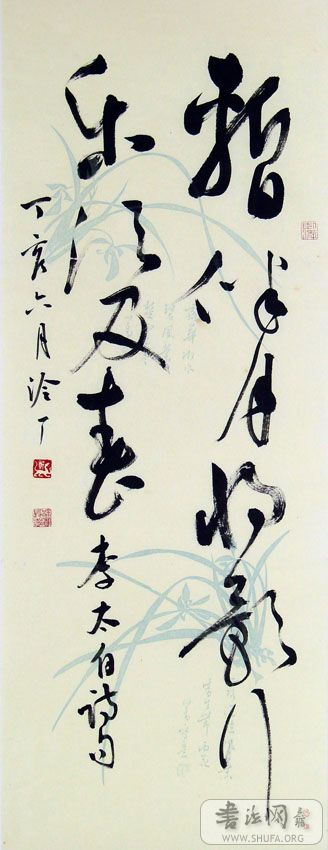 暂伴月将影行
乐须及春李太白诗句
丁亥六月泠丁
书法网
WWW.SHUFA.ORG